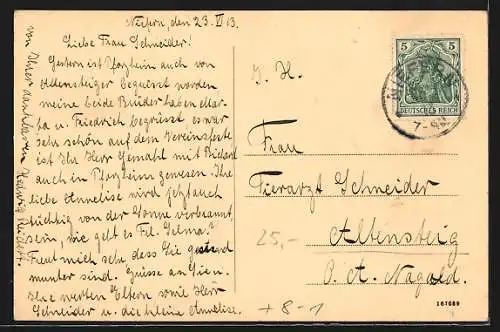 Niefern, den 23. VI 13.
Liebe Frau Schneider!
Gestern ist Pforzheim auch von
Altensteiger begrüsst worden
meine beide Brüder haben Mar-
ta u. Friedrich begrüsst es war
sehr schön auf dem Vereinsfeste
ist Ihr Herr Gemahl mit
auch in Pforzheim gewesen. Ihre
liebe Annelise wird jetzt auch
tüchtig von der Sonne verbrannt
sein, wie geht es Frl. Selma?
Freut mich sehr dass Sie gesund
munter sind. Grüsse an Sie u.
Ihre werten Eltern sowie Herr
Schneider u. die kleine Annelise.
von Ihrer dankbaren Hedwig
5 5
DEUTSCHES REICH
NIEFERN
7-8N
S. H.
Frau
Tierarzt Schneider
Altensteig
O. A. Nagold.
25,-
+8-1
167089